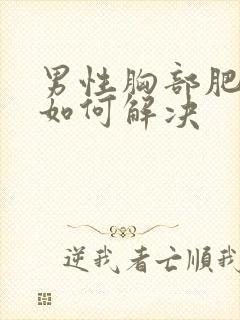 男性胸部肥
如何解决
逆我者亡顺我